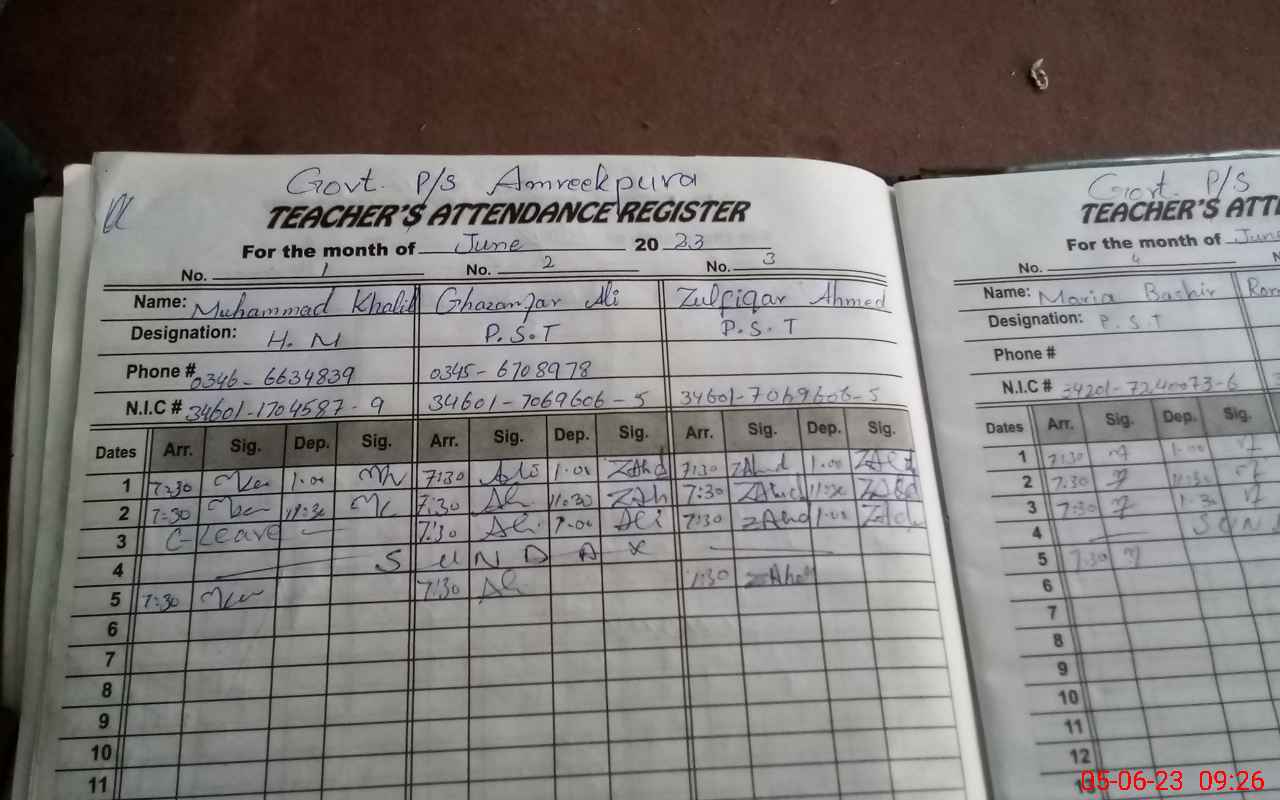 Govt. P/S Amreekpura
TEACHER'S ATTENDANCE REGISTER
For the month of June 20 23
No. 1 No. 2 No. 3
Name: Muhammad Khalil Ghazanfar Ali Zulfiqar Ahmed
Designation: H.M P.S.T P.S.T
Phone # 0346-6634839 0345-6708978
N.I.C # 34601-1704587-9 34601-7069606-5 34601-7069606-5
Dates Arr. Sig. Dep. Sig. Arr. Sig. Dep. Sig. Arr. Sig. Dep. Sig.
1 7:30 1:00 7:30 Ali 1:00 ZAhd 7:30 ZAhd 1:00
2 7:30 11:30 7:30 11:30 ZAh 7:30 11:30
3 C-Leave 7:30 Ali 1:00 Ali 7:30 ZAhd 1:00
4 S U N D A Y
5 7:30 7:30 7:30
6
7
8
9
10
11
Govt. P/S
TEACHER'S ATT
For the month of June
No. 4
Name: Maria Bashir
Designation: P.S.T
Phone #
N.I.C # 34201-7240073-6
Dates Arr. Sig. Dep. Sig.
1 7:30 1:00
2 7:30 11:30
3 7:30 1:30
4 SUN
5 7:30
6
7
8
9
10
11
12
13
05-06-23 09:26